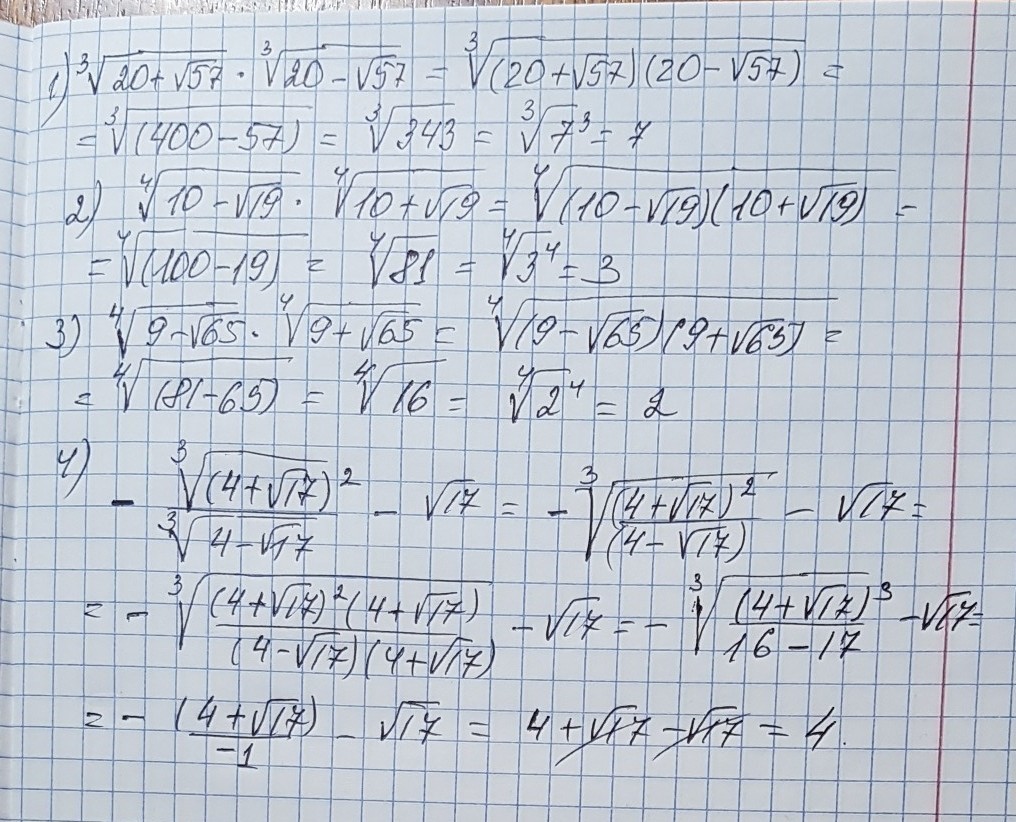 1) ∛(20+√57) · ∛(20-√57) = ∛((20+√57)(20-√57)) =
= ∛((400-57)) = ∛343 = ∛7³ = 7
2) ∜(10-√19) · ∜(10+√19) = ∜((10-√19)(10+√19)) =
= ∜((100-19)) = ∜81 = ∜3⁴ = 3
3) ∜(9-√65) · ∜(9+√65) = ∜((9-√65)(9+√65)) =
= ∜((81-65)) = ∜16 = ∜2⁴ = 2
4) - ∛((4+√17)²) / ∛(4-√17) - √17 = - ∛((4+√17)² / (4-√17)) - √17 =
= - ∛((4+√17)²(4+√17) / (4-√17)(4+√17)) - √17 = - ∛((4+√17)³ / 16-17) - √17 =
= - (4+√17) / -1 - √17 = 4+√17-√17 = 4.